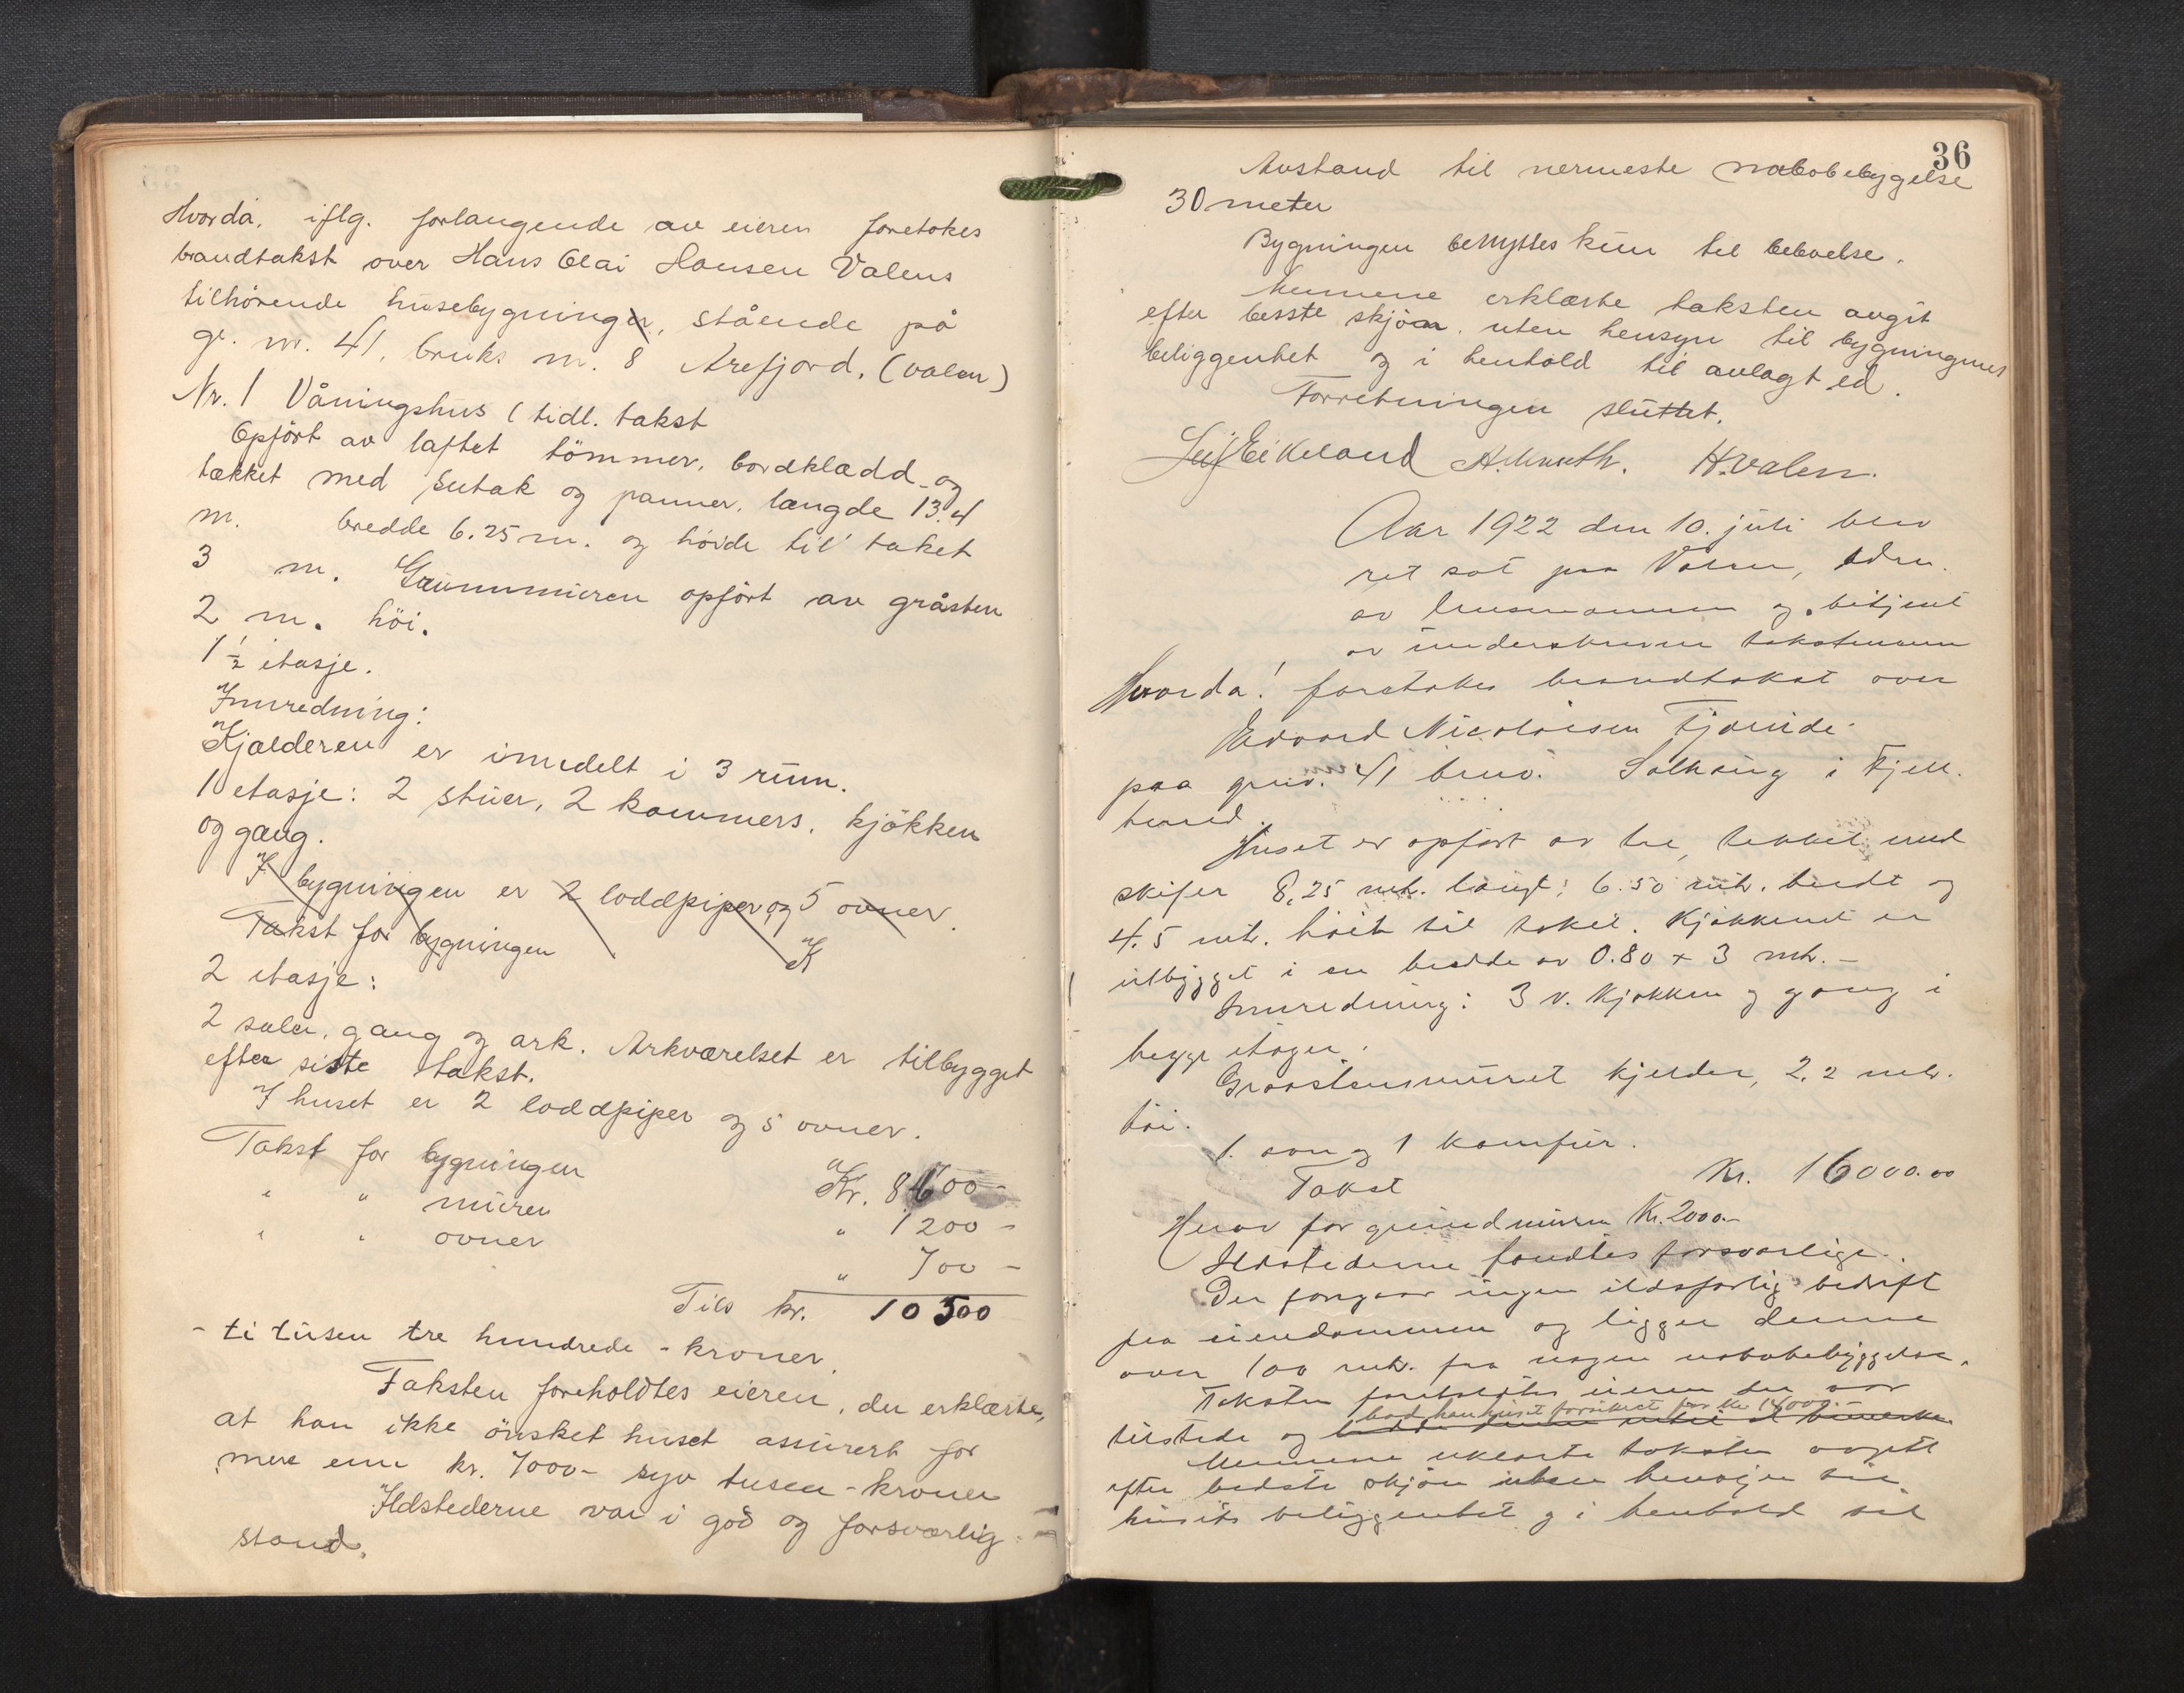 Hvorda, iflg. forlangende av eieren foretokes
brandtakst over Hans Olai Hansen Valens
tilhörende husebygninger, stående på
gr. nr. 41, bruks nr. 8 Arefjord. (Valen)
Nr. 1 Våningshus (tidl. takst
Opfört av laftet tömmer, bordklædd og
tækket med sutak og panner, længde 13.4
m. bredde 6.25 m. og höide til taket
3 m. Grunnmuren opfört av gråsten
2 m. höi.
1 1/2 etasje.
Innredning:
Kjælderen er inndelt i 3 rum.
1 etasje: 2 stuer, 2 kammers, kjökken
og gang.
I bygningen er 2 loddpiper og 5 ovner.
Takst for bygningen K
2 etasje:
2 saler, gang og ark. Arkværelset er tilbygget
efter siste takst.
I huset er 2 loddpiper og 5 ovner.
Takst for bygningen Kr. 8600-
" " muren " 1200-
" " ovner " 700-
Tils kr. 10500
- ti tusen tre hundrede - kroner.
Taksten foreholdtes eieren, der erklærte,
at han ikke önsket huset assurert for
mere enn kr. 7000- syv tusen - kroner
Ildstederne var i god og forsvarlig
stand.
36
Avstand til nermeste nabobebyggelse
30 meter
Bygningen benyttes kun til beboelse.
Mennene erklærte taksten avgit
efter besste skjön uten hensyn til bygningens
beliggenhet og i henhold til avlagt ed.
Forretningen sluttet.
Leif Eikeland A. Knuth. H. Valen.
Aar 1922 den 10. juli blev
ret sat paa Valen,
av lensmannen og betjent
av underskrevne takstmenn
Hvorda! foretokes brandtakst over
Edvard Nicolaisen Fjæreide
paa gnr. 41 bnr. Solhaug i Fjell
herred.
Huset er opfört av tre, tekket med
skifer 8,25 mtr. langt; 6.50 mtr. bredt og
4.5 mtr. höit til taket. Kjökkenet er
utbygget i en bredde av 0.80 x 3 mtr. -
Innredning: 3 v. kjökken og gang i
begge etager.
Graastensmuret kjelder, 2.2 mtr.
höi.
1 ovn og 1 komfur.
Takst Kr. 16000.00
Herav for grundmuren Kr. 2000.-
Ildstederne fandtes forsvarlige.
Der foregaar ingen ildsfarlig bedrift
paa eiendommen og ligger denne
over 100 mtr. fra nogen nabobebyggelse.
Taksten foreholdtes eieren der var
bad han huset forsikret for kr. 14000.-
tilstede og hadde intet at bemerke.
Mennene erklærte taksten avgitt
efter bedste skjön uten hensyn til
husets beliggenhet og i henhold til